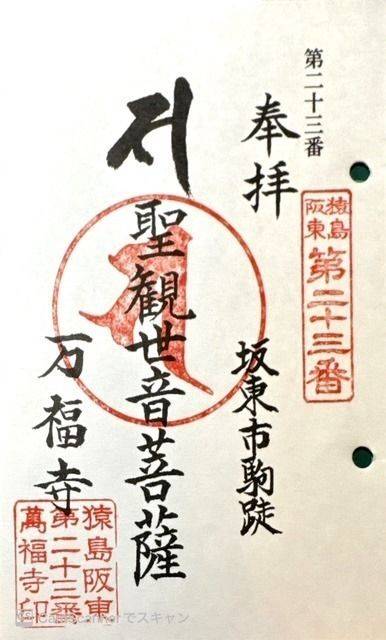 第二十三番
奉拝
猿島
阪東
第二十三番
坂東市駒跿
聖観世音菩薩
万福寺
猿島阪東
第二十三番
萬福寺印
CamScanner でスキャン